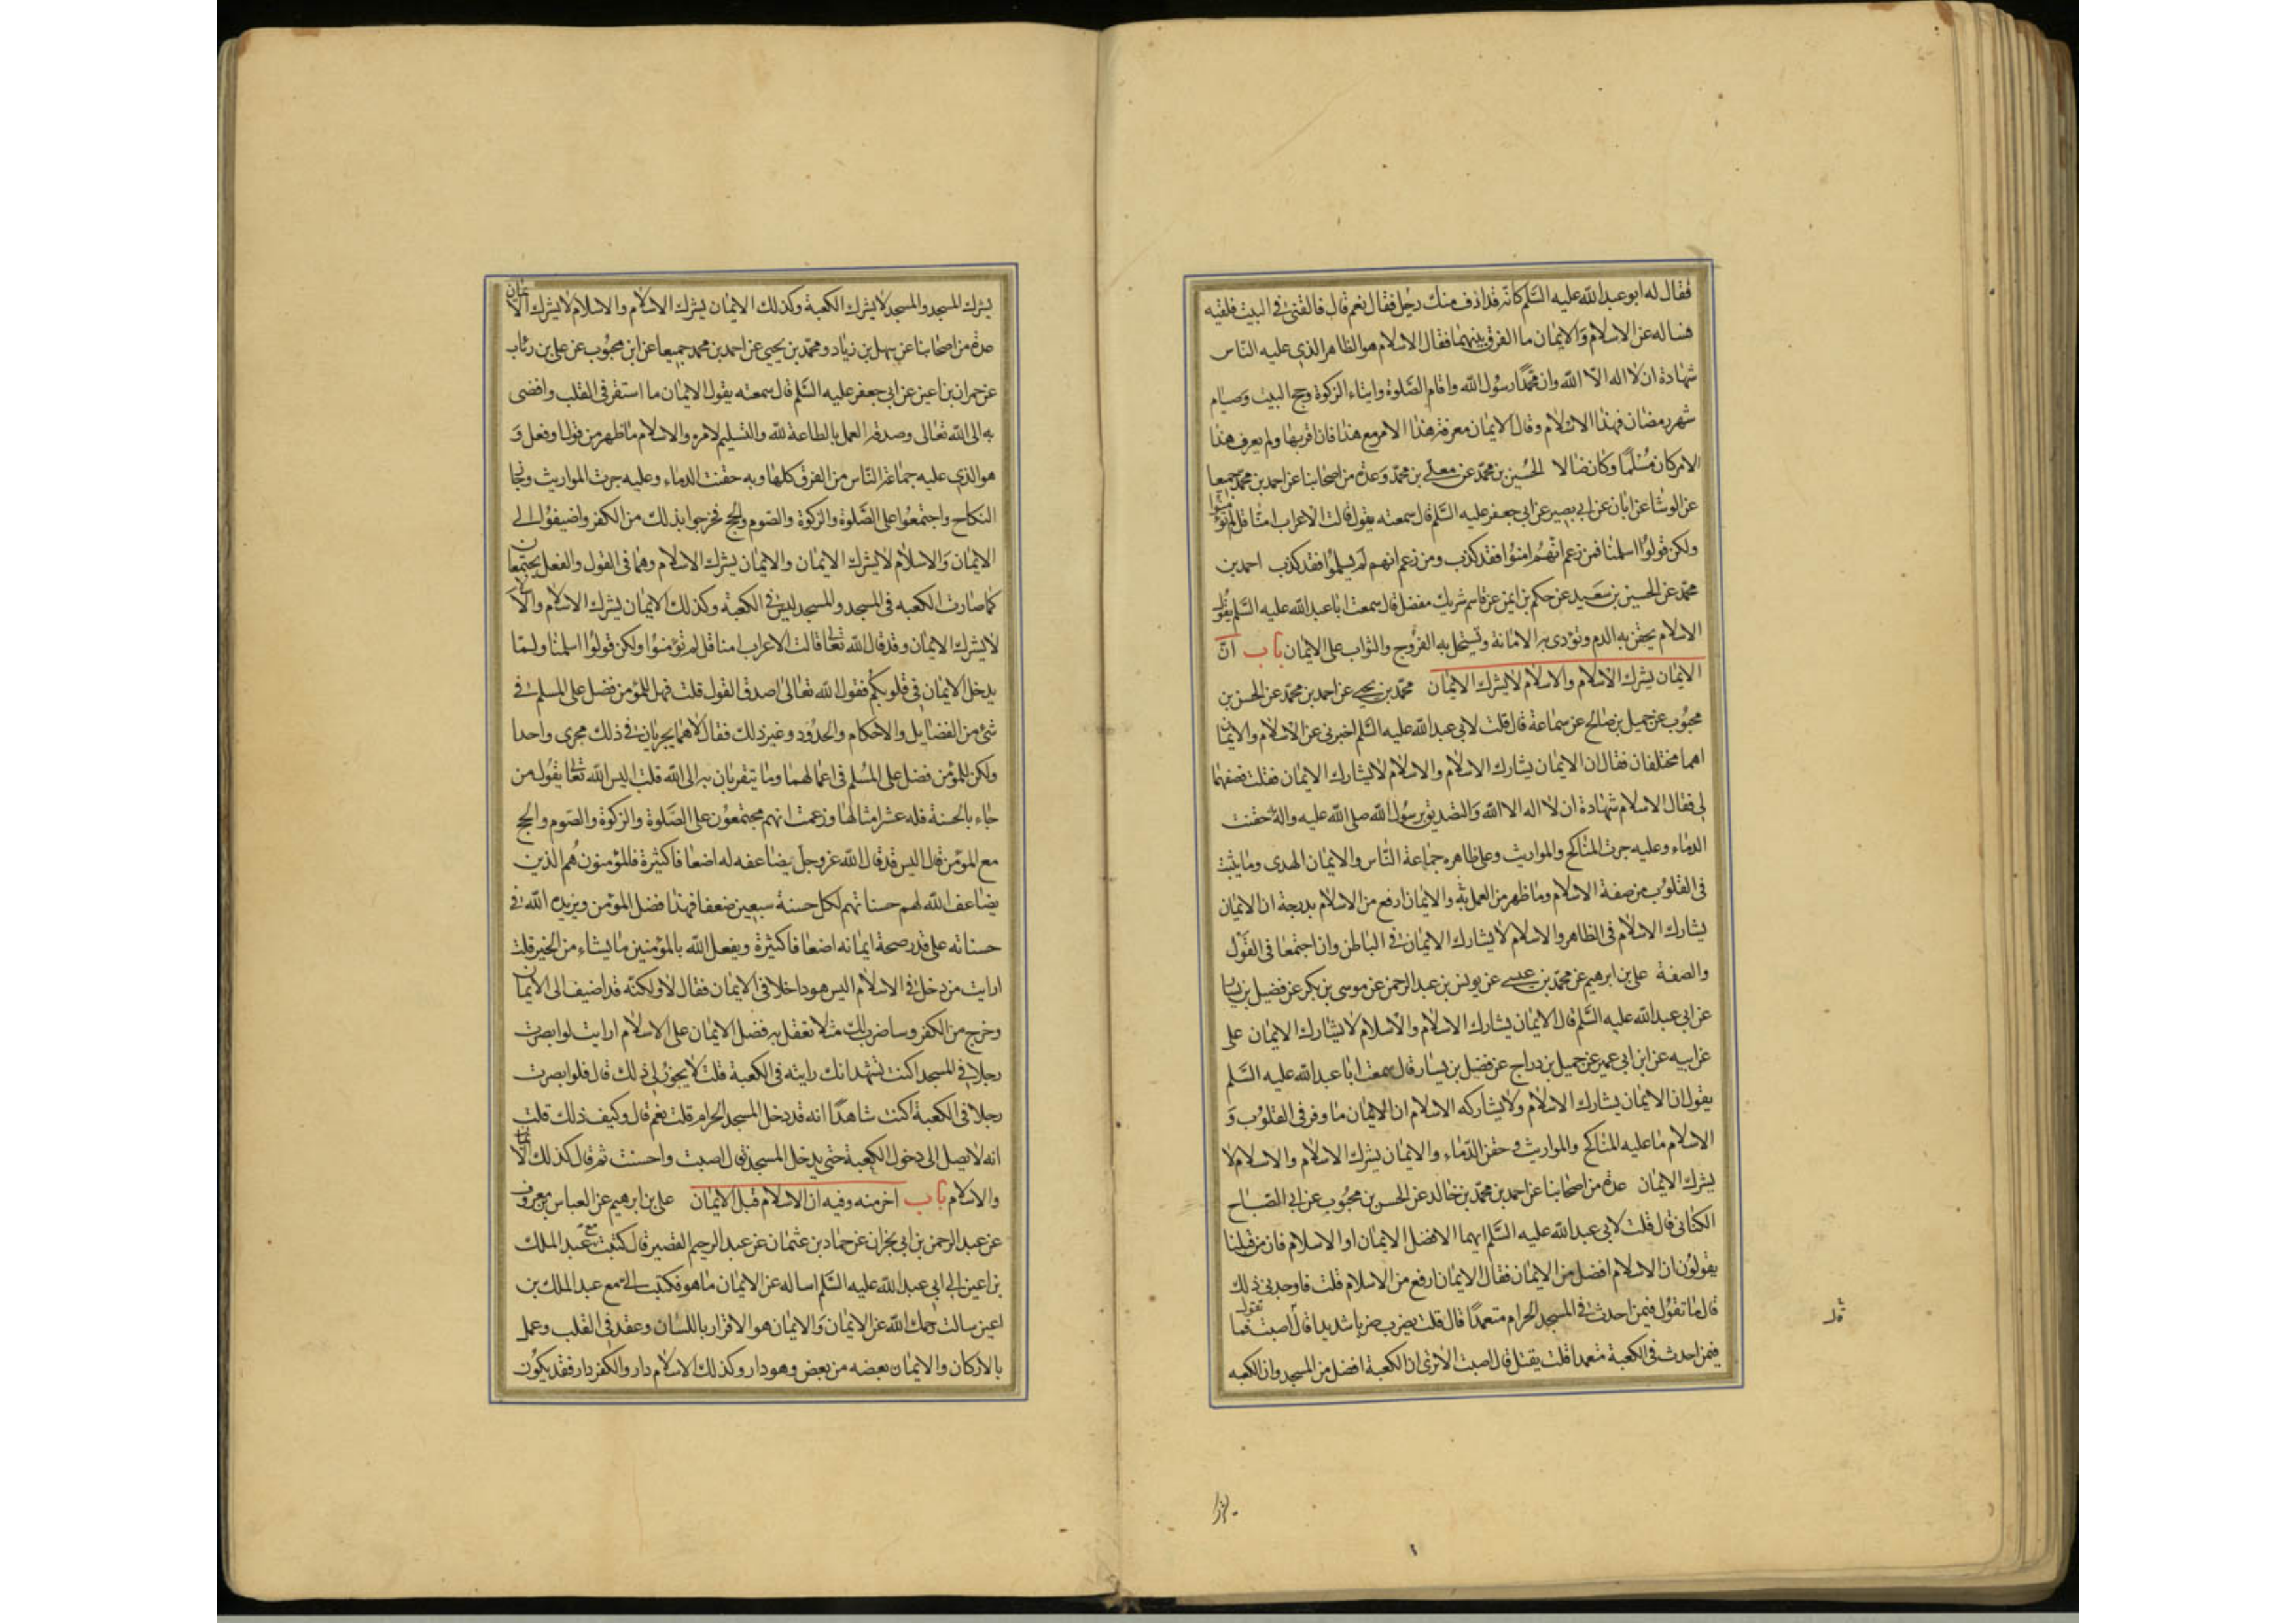 فقال له ابو عبد الله عليه السَّلم كانّه قد ازف منك رحيل فقال نعم قال فالقنى فى البيت فلقيه
فساله عن الاسلام والايمان ما الفرق بينهما فقال الاسلام هو الظاهر الذى عليه الناس
شهادة ان لا اله الا الله وان محمّدًا رسول الله واقام الصَّلوة وايتاء الزكوة وحج البيت وصيام
شهر رمضان فهذا الاسلام وقال الايمان معرفة هذا الامر مع هذا فان اقر بها ولم يعرف هذا
الامر كان مُسْلمًا وكان ضالا الحُسين بن محمّد عن معلّى بن محمّد وعدة من اصحابنا عن احمد بن محمّد جميعا
عن الوشا عن ابان عن ابى بصير عن ابى جعفر عليه السَّلم قال سمعته يقول قالت الاعراب امنّا قل لم تؤمنوا
ولكن قولوا اسلمنا فمن زعم انهم امنوا فقد كذب ومن زعم انهم لم يسلموا فقد كذب احمد بن
محمّد عن الحسين بن سَعيد عن حكم بن ايمن عن قاسم شريك مفضل قال سمعت ابا عبد الله عليه السَّلم يقول
الاسلام يحقن به الدم وتؤدى به الامانة وتستحل به الفروج والثواب على الايمان باب انّ
الايمان يشرك الاسلام والاسلام لا يشرك الايمان محمّد بن يحيى عن احمد بن محمّد عن الحسن بن
محبُوب عن جميل بن صالح عن سماعة قال قلت لابى عبد الله عليه السَّلم اخبرنى عن الاسلام والايمان
اهما مختلفان فقال ان الايمان يشارك الاسلام والاسلام لا يشارك الايمان فقلت فصفهما
لى فقال الاسلام شهادة ان لا اله الا الله والتصديق برسُول الله صلى الله عليه واله به حقنت
الدماء وعليه جرت المناكح والمواريث وعلى ظاهره جماعة الناس والايمان الهدى وما يثبت
فى القلوب من صفة الاسلام وما ظهر من العمل به والايمان ارفع من الاسلام بدرجة ان الايمان
يشارك الاسلام فى الظاهر والاسلام لا يشارك الايمان فى الباطن وان اجتمعا فى القَوْل
والصفة على بن ابرهيم عن محمّد بن عيسى عن يونس بن عبد الرحمن عن موسى بن بكر عن فضيل بن يسار
عن ابى عبد الله عليه السَّلم قال الايمان يشارك الاسلام والاسلام لا يشارك الايمان على
عن ابيه عن ابن ابى عمير عن جميل بن دراج عن فضيل بن يسار قال سمعت ابا عبد الله عليه السَّلم
يقول ان الايمان يشارك الاسلام ولا يشاركه الاسلام ان الايمان ما وقر فى القلوب وَ
الاسلام ما عليه المناكح والمواريث وحقن الدّماء والايمان يشرك الاسلام والاسلام لا
يشرك الايمان عدة من اصحابنا عن احمد بن محمّد بن خالد عن الحسن بن محبُوب عن ابى الصّبّاح
الكنانى قال قلت لابى عبد الله عليه السَّلم ايهما الافضل الايمان او الاسلام فان من قبلنا
يقولون ان الاسلام افضل من الايمان فقال الايمان ارفع من الاسلام قلت فاوجدنى ذلك
قال ما تقول فيمن احدث فى المسجد الحرام متعمدًا قال قلت يضرب ضربا شديدا قال اصبت فما تقول
فيمن احدث فى الكعبة متعمدا قلت يقتل قال اصبت الا ترى ان الكعبة افضل من المسجد وان الكعبه
يشرك
يشرك المسجد والمسجد لا يشرك الكعبة وكذلك الايمان يشرك الاسلام والاسلام لا يشرك الايمان
عدة من اصحابنا عن سهل بن زياد ومحمّد بن يحيى عن احمد بن محمد جميعا عن ابن محبُوب عن على بن رئاب
عن حمران بن اعين عن ابى جعفر عليه السَّلم قال سمعته يقول الايمان ما استقر فى القلب وافضى
به الى الله تعالى وصدقه العمل بالطاعة لله والتسليم لامره والاسلام ما ظهر من قول او فعل وَ
هو الذى عليه جماعة النّاس من الفرق كلها وبه حقنت الدماء وعليه جرت المواريث وجاز
النكاح واجتمعُوا على الصَّلوة والزكوة والصوم والحج فخرجوا بذلك من الكفر واضيفوُا الى
الايمان والاسلام لا يشرك الايمان والايمان يشرك الاسلام وهما فى القول والفعل يجتمعان
كما صارت الكعبه فى المسجد والمسجد ليس فى الكعبة وكذلك الايمان يشرك الاسلام والاسلام
لا يشرك الايمان وقد قال الله تعالى قالت الاعراب امنا قل لم تؤمنوُا ولكن قولوُا اسلمنا ولمّا
يدخل الايمان فى قلوبكم فقول الله تعالى اصدق القول قلت فهل للمؤمن فضل على المسلم فى
شئ من الفضايل والاحكام والحدُود وغير ذلك فقال لا هما يجريان فى ذلك مجرى واحدا
ولكن للمؤمن فضل على المُسلم فى اعمالهما وما يتقربان به الى الله قلت اليس الله تعالى يقُول من
جاء بالحسنة فله عشر امثالها وزعمت انهم مجتمعُون على الصَّلوة والزكوة والصّوم والحج
مع المؤمن قال اليس قد قال الله عز وجل يضاعفه له اضعافا كثيرة فالمؤمنون هُم الذين
يضاعف الله لهم حسناتهم لكل حسنة سبعين ضعفا فهذا فضل المؤمن ويزيده الله فى
حسناته على قدر صحة ايمانه اضعافا كثيرة ويفعل الله بالمؤمنين ما يشاء من الخير قلت
ارايت من دخل فى الاسلام اليس هو داخلا فى الايمان فقال لا ولكنّه قد اضيف الى الايمان
وخرج من الكفر وساضرب لك مثلا تعقل به فضل الايمان على الاسلام ارايت لو ابصرت
رجلا فى المسجد اكنت تشهد انك رايته فى الكعبة قلت لا يجوز لى ذلك قال فلو ابصرت
رجلا فى الكعبة اكنت شاهدًا انه قد دخل المسجد الحرام قلت نعم قال وكيف ذلك قلت
انه لا يصل الى دخول الكعبة حتى يدخل المسجد قال اصبت واحسنت ثم قال كذلك الايمان
والاسلام باب اخر منه وفيه ان الاسلام قبل الايمان على بن ابرهيم عن العباس بن معروف
عن عبد الرحمن بن ابى نجران عن حماد بن عثمان عن عبد الرحيم القصير قال كتبت مع عبد الملك
بن اعين الى ابى عبد الله عليه السَّلم اساله عن الايمان ما هو فكتب الى مع عبد الملك بن
اعين سالت رحمك الله عن الايمان والايمان هو الاقرار باللسان وعقد فى القلب وعمل
بالاركان والايمان بعضه من بعض وهو دار وكذلك الاسلام دار والكفر دار فقد يكون